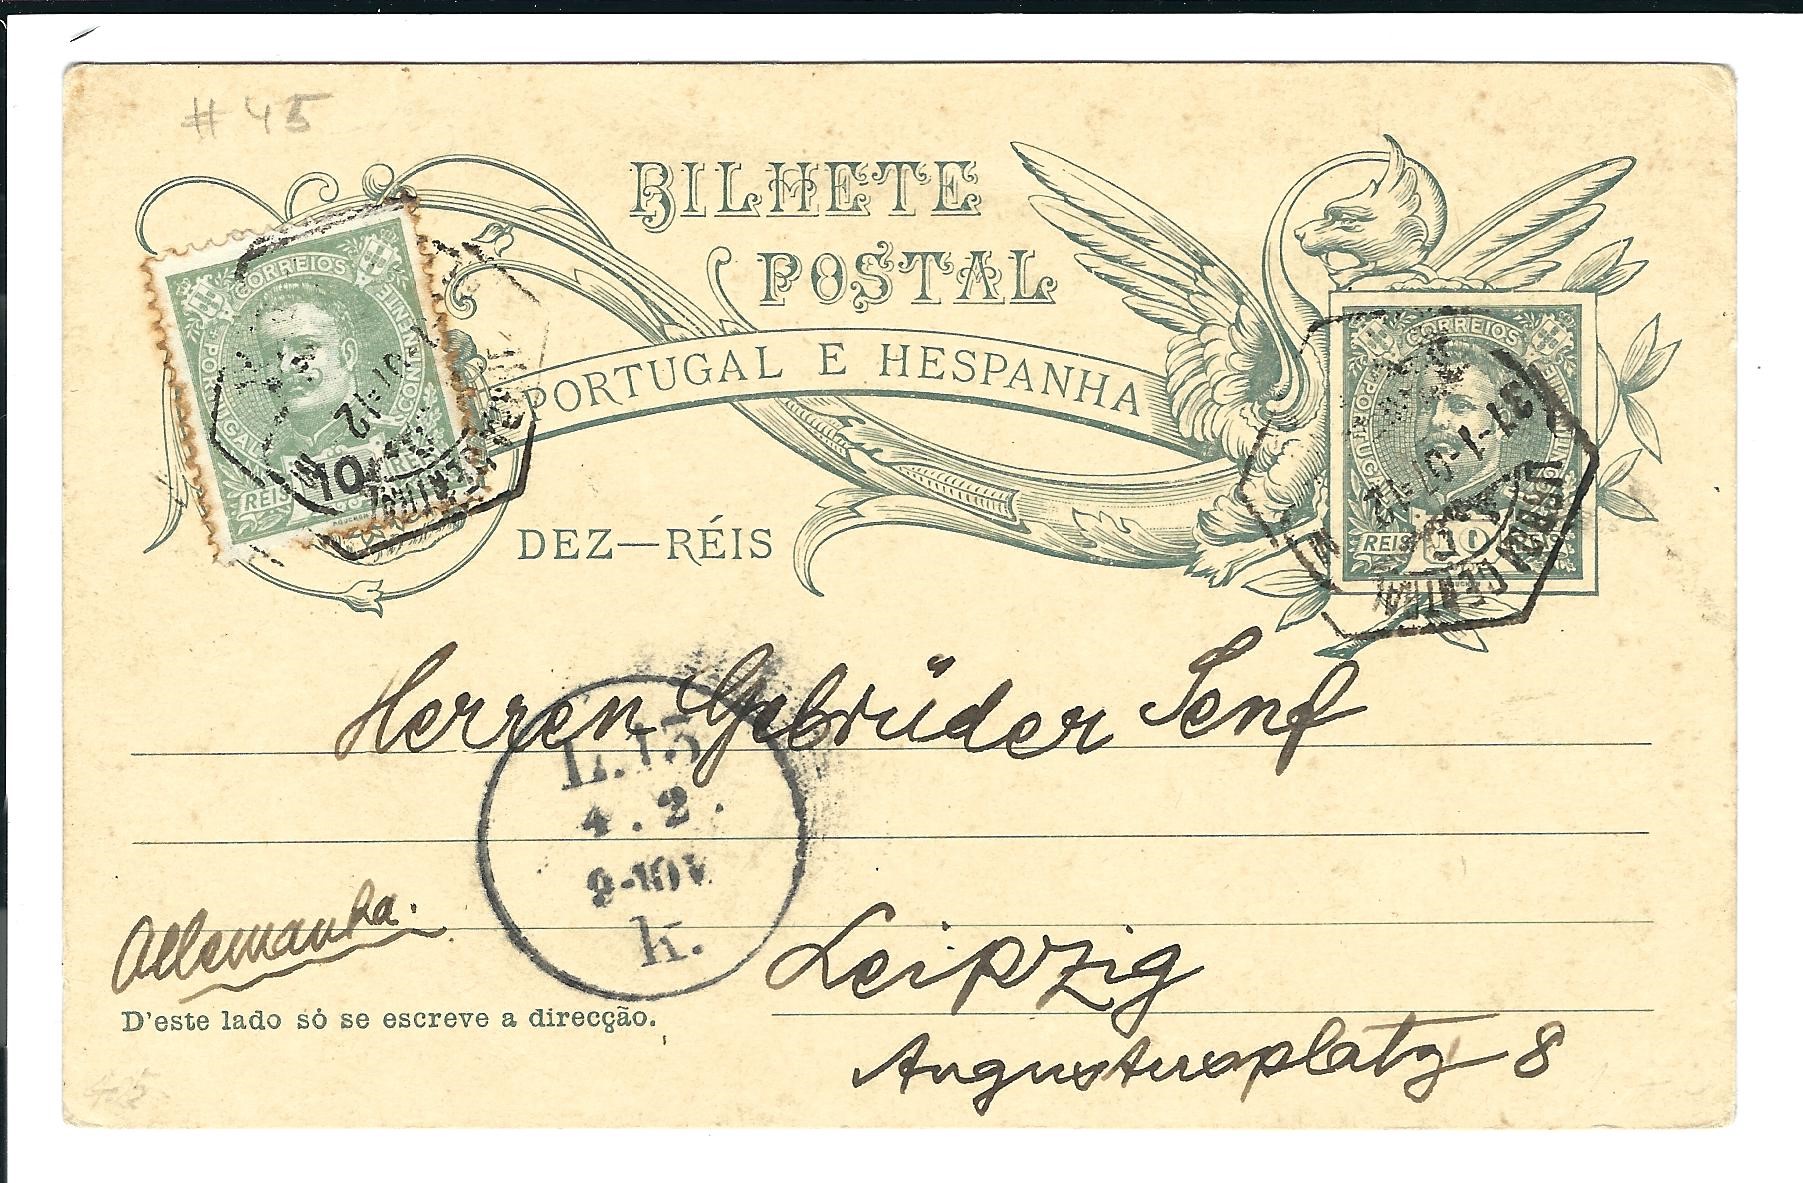 # 45
BILHETE
POSTAL
PORTUGAL E HESPANHA
DEZ—RÉIS
CORREIOS
PORTUGAL CONTINENTE
REIS 10
CORREIOS
PORTUGAL CONTINENTE
REIS 10
31-1-07-12
LISBOA CENTRAL
Herren Gebrüder Senf
L.13
4.2.
9-10V
k.
Allemanha.
Leipzig
D'este lado só se escreve a direcção.
Augustusplatz 8